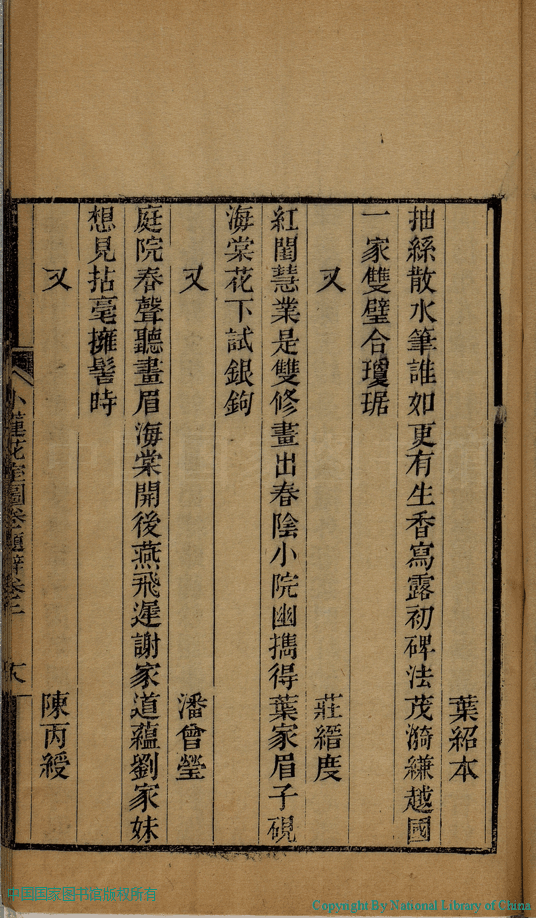 葉紹本
抽絲散水筆誰如更有生香寫露初碑法茂漪縑越國
一家雙璧合瓊琚
又
莊縉度
紅閨慧業是雙修畫出春陰小院幽擕得葉家眉子硯
海棠花下試銀鉤
又
潘曾瑩
庭院春聲聽畫眉海棠開後燕飛遲謝家道蘊劉家妹
想見拈毫擁髻時
又
陳丙綬
小蓮花室圖卷題辭卷二
中国国家图书馆版权所有
Copyright By National Library of China